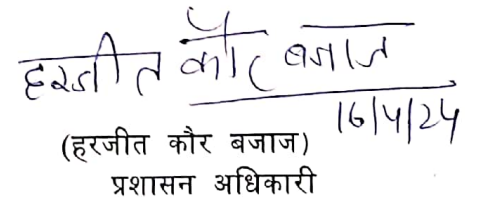 हरजीत कौर बजाज
16/4/24
(हरजीत कौर बजाज)
प्रशासन अधिकारी